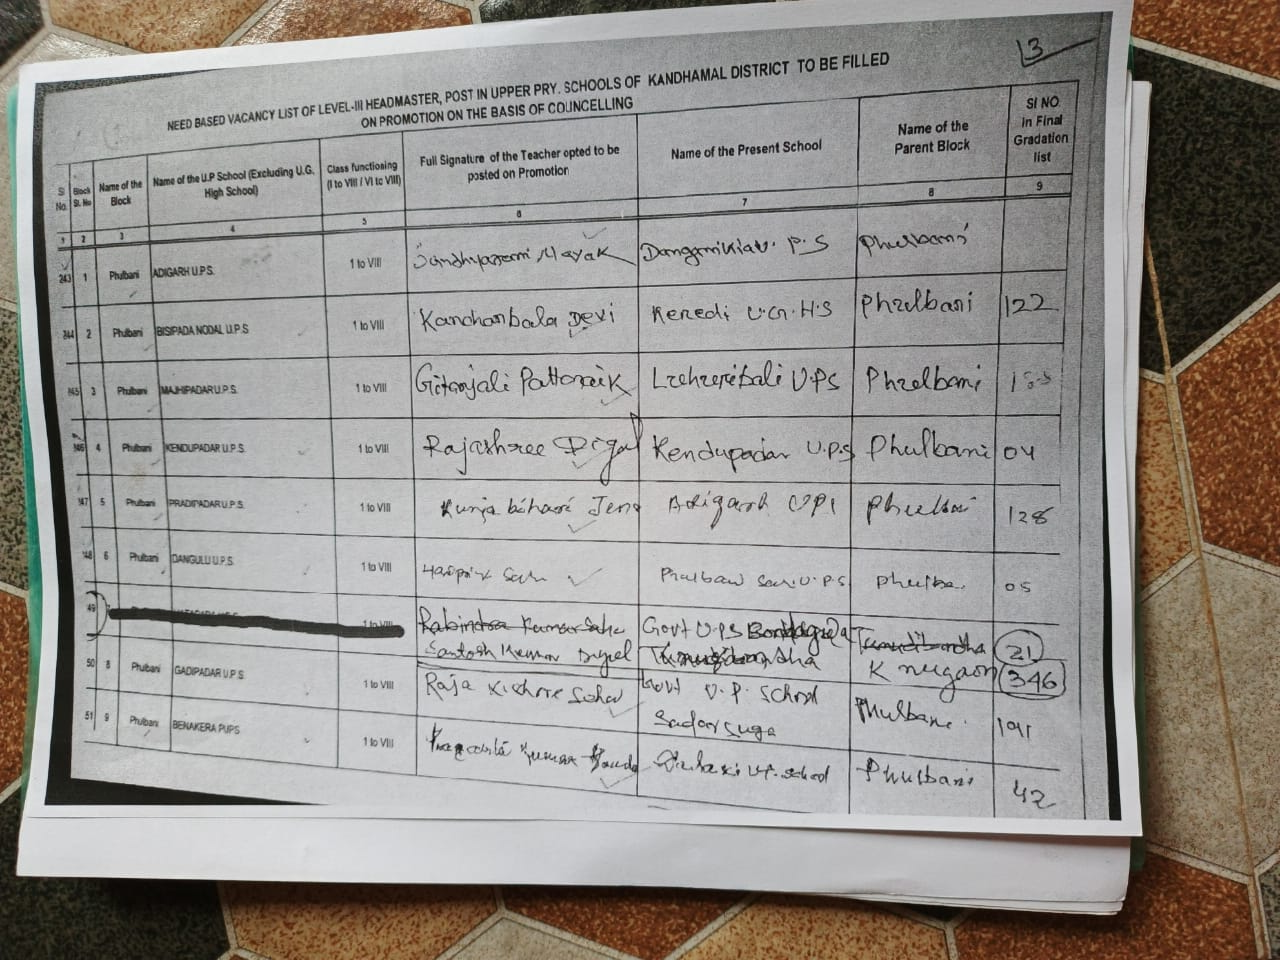 13
NEED BASED VACANCY LIST OF LEVEL-III HEADMASTER, POST IN UPPER PRY. SCHOOLS OF KANDHAMAL DISTRICT TO BE FILLED
ON PROMOTION ON THE BASIS OF COUNCELLING
Sl No. Block Sl. No Name of the Block Name of the U.P School (Excluding U.G. High School) Class functioning (I to VIII / VI to VIII) Full Signature of the Teacher opted to be posted on Promotion Name of the Present School Name of the Parent Block Sl NO in Final Gradation list
1 2 3 4 5 6 7 8 9
243 1 Phulbani ADIGARH U.P.S. 1 to VIII P.S Phulbani
244 2 Phulbani BISIPADA NODAL U.P.S 1 to VIII Kanchanbala Devi Keredi U.G.H.S Phulbani 122
245 3 Phulbani MAJHIPADAR U.P.S. 1 to VIII Gitanjali Pattanaik U.P.S Phulbani
246 4 Phulbani KENDUPADAR U.P.S. 1 to VIII Rajashree Digal Kendupadar U.P.S Phulbani 04
247 5 Phulbani PRADIPADAR U.P.S. 1 to VIII Kunja bihari Jena Adigarh UPS Phulbani 128
248 6 Phulbani DANGULU U.P.S. 1 to VIII U.P.S 05
49 1 to VIII Rabindra Kumar Saha Govt U.P.S 21
Santosh Kumar Digal K nugaon 346
50 8 Phulbani GADIPADAR U.P.S. 1 to VIII Raja Kishore Govt U.P. School Phulbani 191
51 9 Phulbani BENAKERA PUPS 1 to VIII Kumar U.P. School Phulbani 42